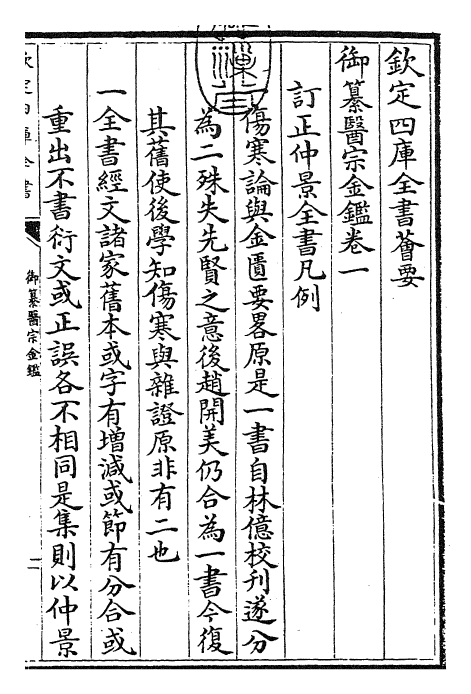 欽定四庫全書薈要
御纂醫宗金鑑卷一
訂正仲景全書凡例
一傷寒論與金匱要畧原是一書自林億校刋遂分
為二殊失先賢之意後趙開美仍合為一書今復
其舊使後學知傷寒與雜證原非有二也
一全書經文諸家舊本或字有增減或節有分合或
重出不書衍文或正誤各不相同是集則以仲景
御纂醫宗金鑑